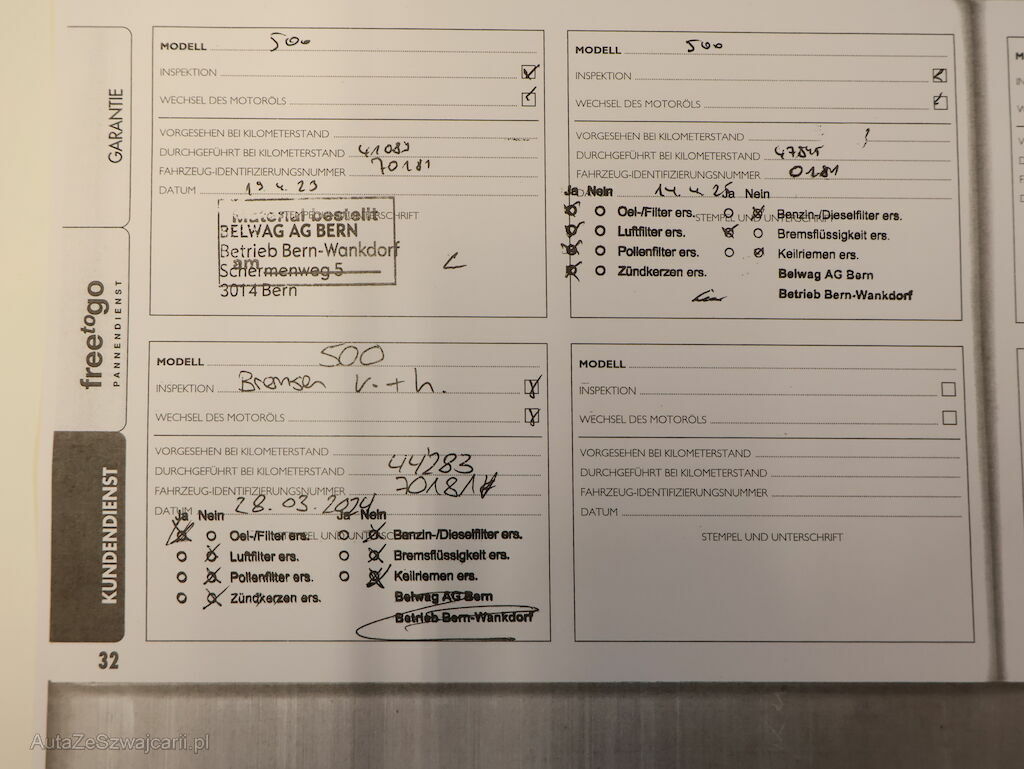 GARANTIE
freetogo
PANNENDIENST
KUNDENDIENST
32
MODELL 500
INSPEKTION
WECHSEL DES MOTORÖLS
VORGESEHEN BEI KILOMETERSTAND
DURCHGEFÜHRT BEI KILOMETERSTAND 41083
FAHRZEUG-IDENTIFIZIERUNGSNUMMER 70181
DATUM 19 4. 23
STEMPEL UND UNTERSCHRIFT
Material bestellt
BELWAG AG BERN
Betrieb Bern-Wankdorf
am
Schermenweg 5
3014 Bern
MODELL 500
INSPEKTION
WECHSEL DES MOTORÖLS
VORGESEHEN BEI KILOMETERSTAND
DURCHGEFÜHRT BEI KILOMETERSTAND
FAHRZEUG-IDENTIFIZIERUNGSNUMMER 0181
DATUM 14.4.25
STEMPEL UND UNTERSCHRIFT
Ja Nein Ja Nein
Oel-/Filter ers. Benzin-/Dieselfilter ers.
Luftfilter ers. Bremsflüssigkeit ers.
Pollenfilter ers. Keilriemen ers.
Zündkerzen ers. Belwag AG Bern
Betrieb Bern-Wankdorf
MODELL 500
INSPEKTION Bremsen v. + h.
WECHSEL DES MOTORÖLS
VORGESEHEN BEI KILOMETERSTAND
DURCHGEFÜHRT BEI KILOMETERSTAND 44283
FAHRZEUG-IDENTIFIZIERUNGSNUMMER 70181
DATUM 28.03.2024
STEMPEL UND UNTERSCHRIFT
Ja Nein Ja Nein
Oel-/Filter ers. Benzin-/Dieselfilter ers.
Luftfilter ers. Bremsflüssigkeit ers.
Pollenfilter ers. Keilriemen ers.
Zündkerzen ers. Belwag AG Bern
Betrieb Bern-Wankdorf
MODELL
INSPEKTION
WECHSEL DES MOTORÖLS
VORGESEHEN BEI KILOMETERSTAND
DURCHGEFÜHRT BEI KILOMETERSTAND
FAHRZEUG-IDENTIFIZIERUNGSNUMMER
DATUM
STEMPEL UND UNTERSCHRIFT
AutaZeSzwajcarii.pl